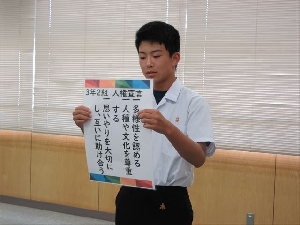 3年2組 人権宣言
一多様性を認める
一人種や文化を尊重
する
一思いやりを大切に
し、互いに助け合う